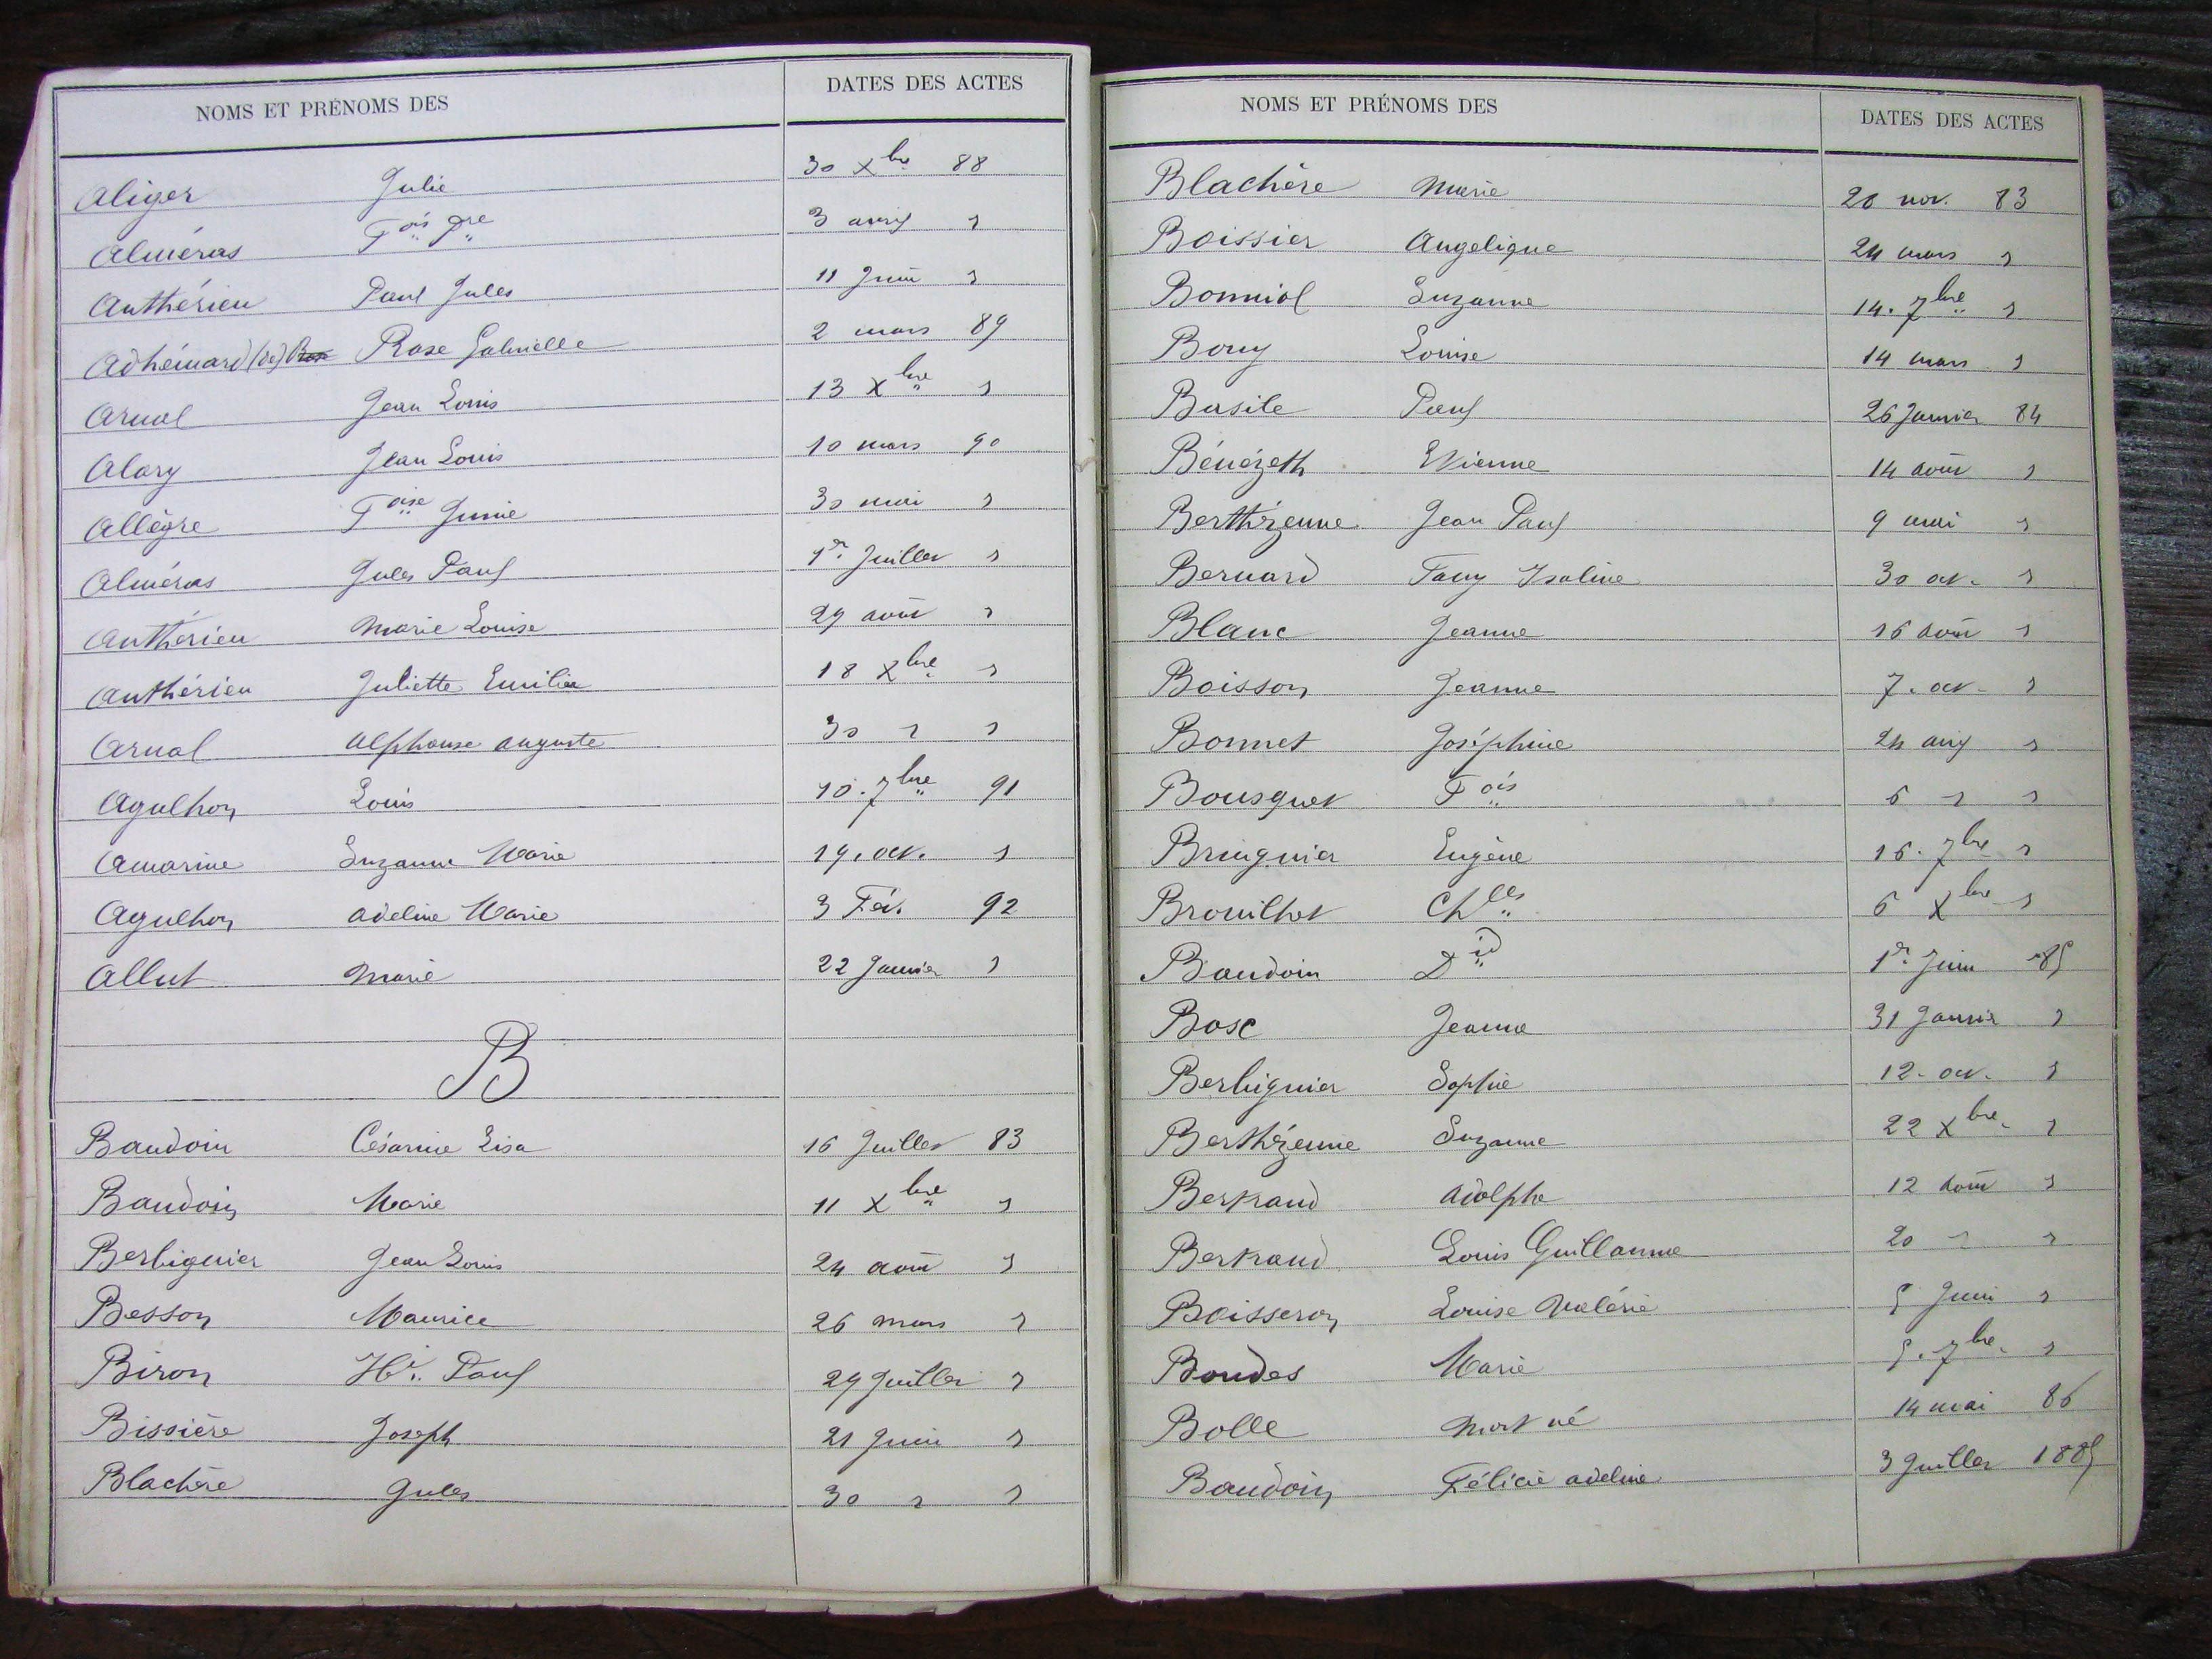 NOMS ET PRÉNOMS DES DATES DES ACTES
Aliger Julie 30 Xbre 88
Alméras Fois Pre 3 avril "
Anthérieu Paul Jules 11 Juin "
Adhémard (de) Rose Gabrielle 2 mars 89
Arnal Jean Louis 13 Xbre "
Alary Jean Louis 10 mars 90
Allègre Foise Junie 30 mai "
Alméras Jules Paul 1er Juillet "
Anthérieu Marie Louise 29 août "
Anthérieu Juliette Emilie 18 Xbre "
Arnal Alphonse Auguste 30 " "
Agulhon Louis 10. 7bre 91
Amarine Suzanne Marie 19. oct. "
Agulhon Adeline Marie 3 Fév. 92
Allut Marie 22 Janvier "
B
Baudoin Césarine Lisa 16 Juillet 83
Baudoin Marie 11 Xbre "
Berbiguier Jean Louis 24 août "
Besson Maurice 26 mars "
Biron Hri. Paul 29 Juillet "
Bissière Joseph 21 Juin "
Blachère Jules 30 " "
NOMS ET PRÉNOMS DES DATES DES ACTES
Blachère Marie 20 nov. 83
Boissier Angelique 24 mars "
Bonniol Suzanne 14. 7bre "
Bouy Louise 14 mars "
Basile Paul 26 Janvier 84
Bénézeth Etienne 14 août "
Berthézenne Jean Paul 9 mai "
Bernard Fany Isaline 30 oct. "
Blanc Jeanne 16 août "
Boisson Jeanne 7. oct. "
Bonnet Joséphine 24 avril "
Bousquet Fois 6 " "
Bruguier Eugène 16. 7bre "
Brouilhet Chles 6 Xbre "
Baudoin Did 1er Juin 85
Bosc Jeanne 31 Janvier "
Berbiguier Sophie 12. oct. "
Berthézenne Suzanne 22 Xbre. "
Bertrand Adolphe 12 août "
Bertrand Louis Guillaume 20 " "
Boisseron Louise Valérie 5 Juin "
Boudes Marie 5. 7bre. "
Bolle Mort né 14 mai 86
Baudoin Félicie Adeline 3 Juillet 1885